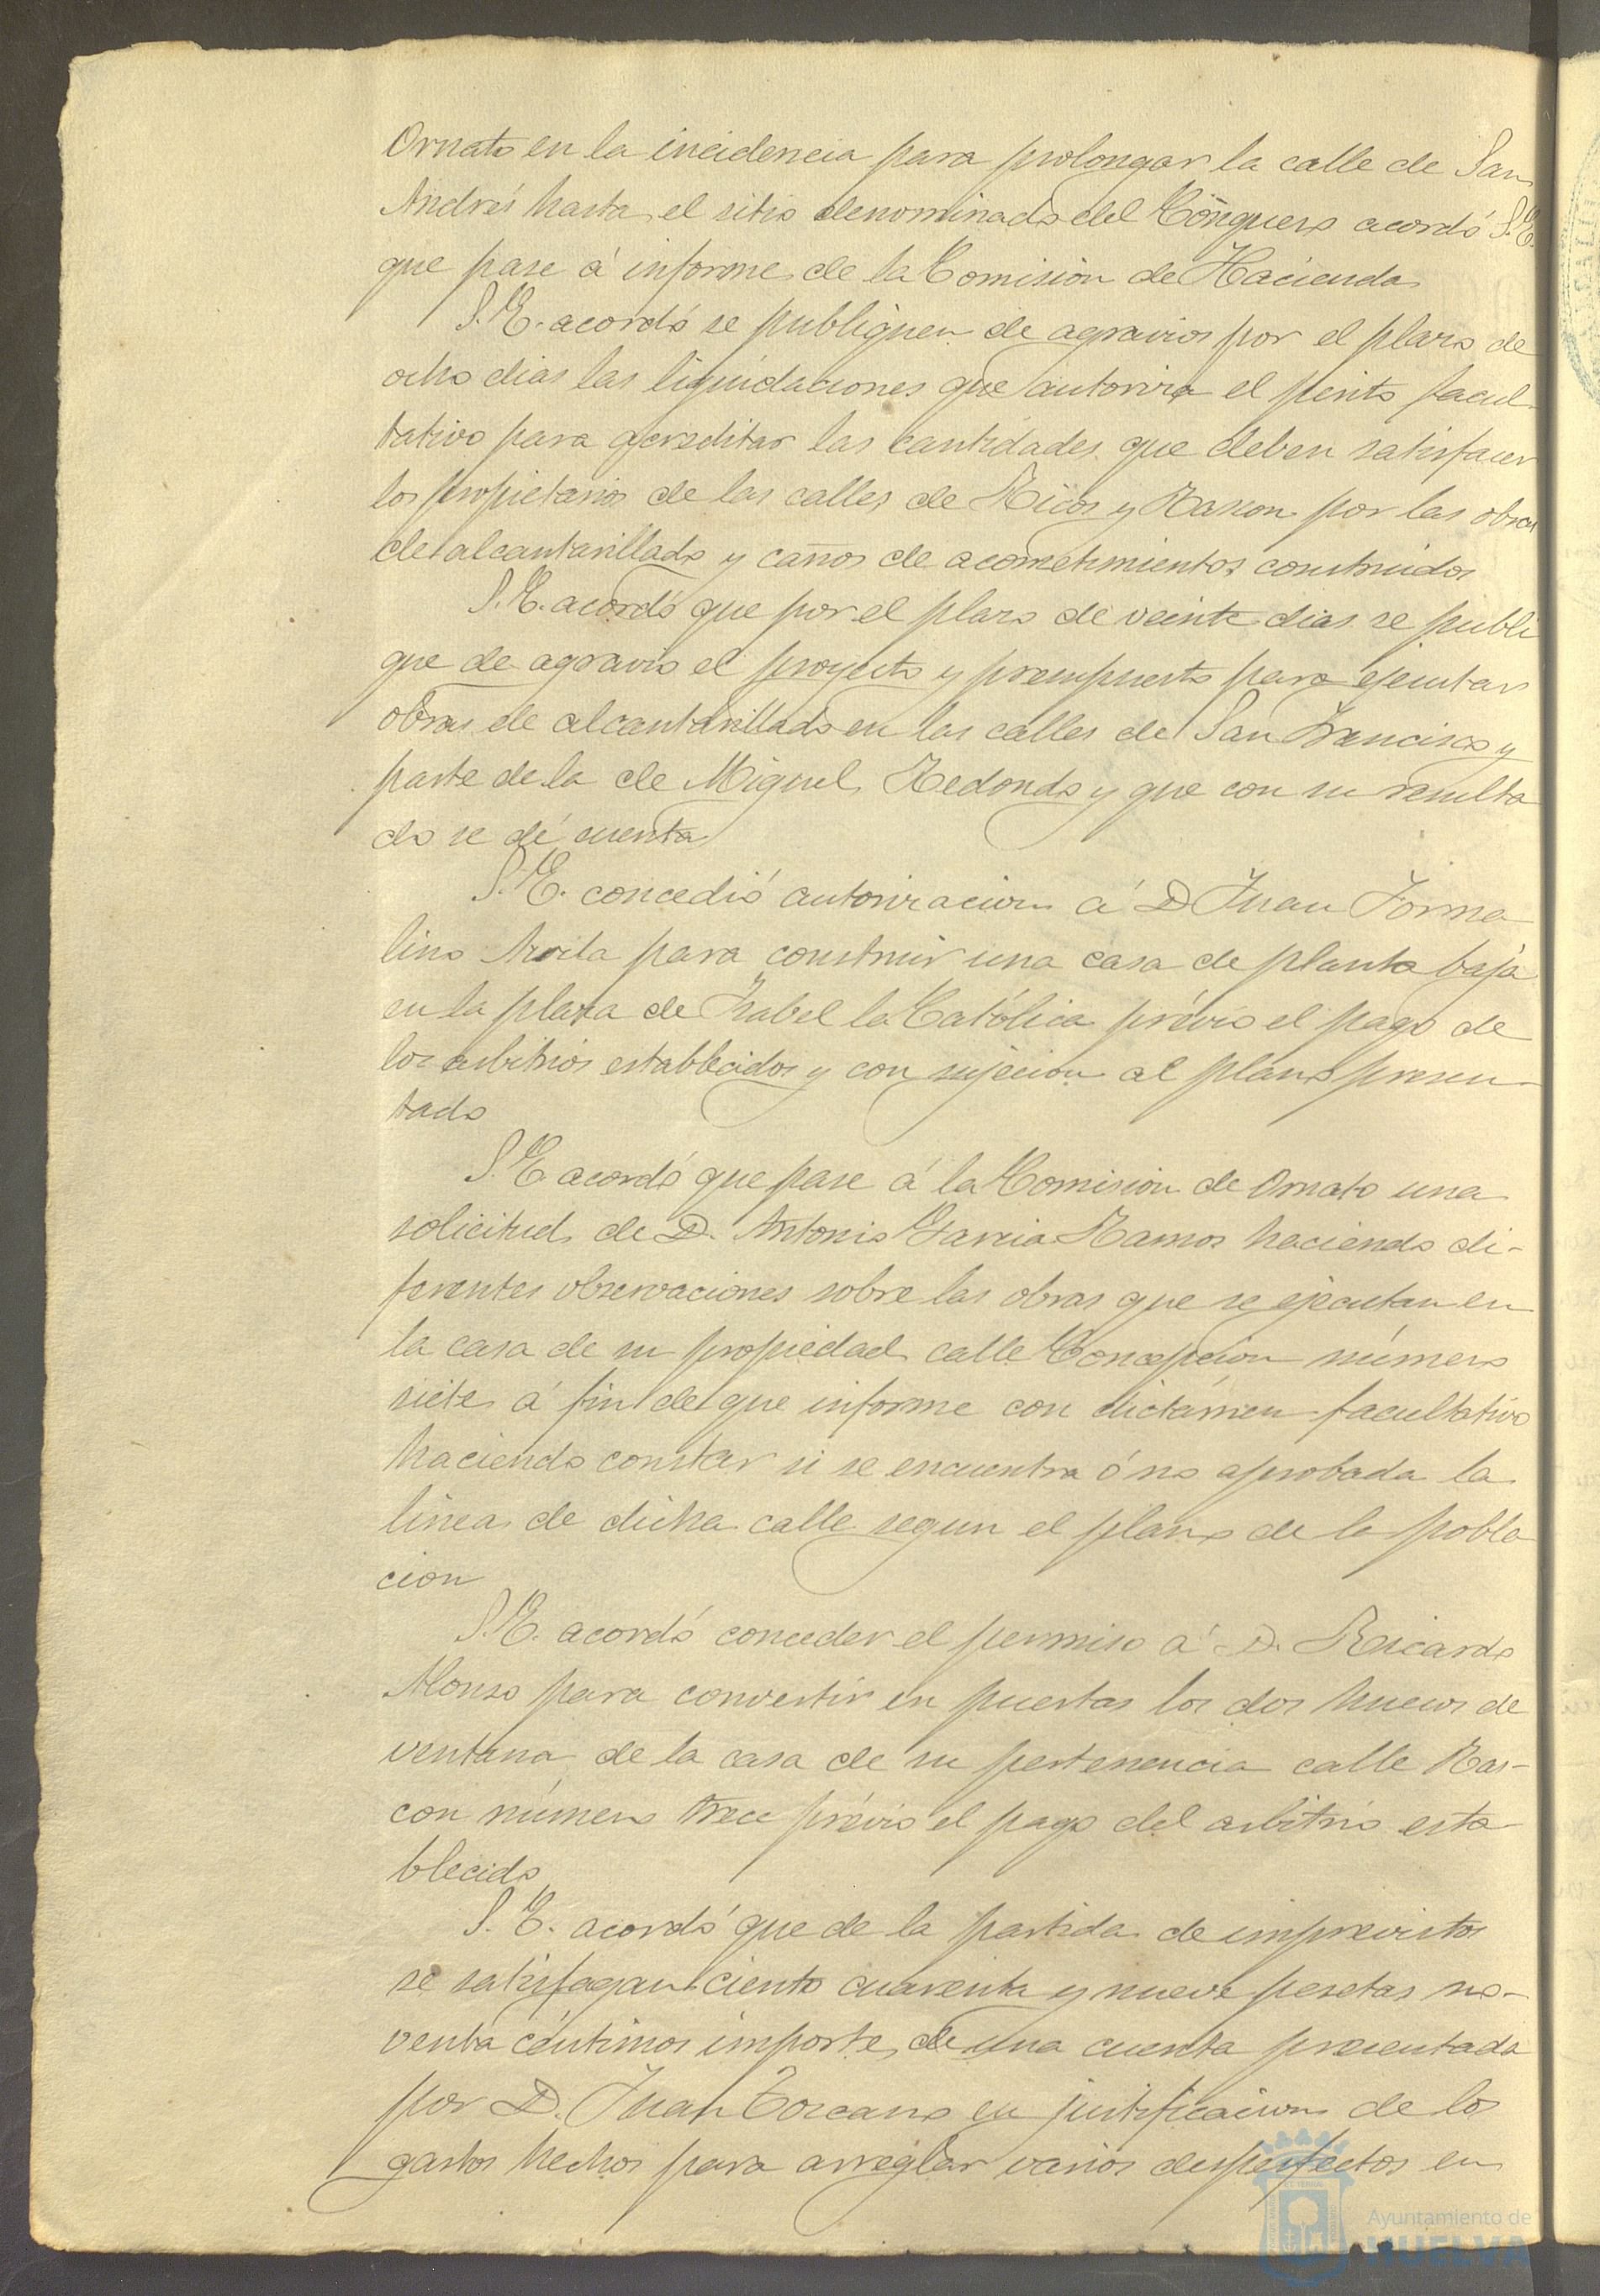 Ornato en la incidencia para prolongar la calle de San
Andrés hasta el sitio denominado del Cónquero acordó S.E.
que pase á informe de la Comision de Hacienda
S.E. acordó se publiquen de agravios por el plazo de
ocho dias las liquidaciones que autoriza el perito facul-
tativo para acreditar las cantidades que deben satisfacer
los propietarios de las calles de Ricos y Rascon por las obras
de alcantarillado y caños de acometimientos construidos
S.E. acordó que por el plazo de veinte dias se publi
que de agravio el proyecto y presupuesto para ejecutar
obras de alcantarillado en las calles de San Francisco y
parte de la de Miguel Redondo y que con su resulta
do se dé cuenta
S.E. concedió autorizacion á D Juan Forna
lino para construir una casa de planta baja
en la plaza de Isabel la Católica prévio el pago de
los arbitrios establecidos y con sujecion al plano presen-
tado
S.E acordó que pase á la Comision de Ornato una
solicitud de D. Antonio Garcia Ramos haciendo di-
ferentes observaciones sobre las obras que se ejecutan en
la casa de su propiedad calle Concepcion número
siete á fin de que informe con dictámen facultativo
haciendo constar si se encuentra ó no aprobada la
linea de dicha calle segun el plano de la pobla
cion
S.E. acordó conceder el permiso á D. Ricardo
Alonso para convertir en puertas los dos huecos de
ventana de la casa de su pertenencia calle Ras-
con número trece prévio el pago del arbitrio esta-
blecido
S.E. acordó que de la partida de imprevistos
se satisfagan ciento cuarenta y nueve pesetas no-
venta céntimos importe de una cuenta presentada
por D. Juan Toscano en justificacion de los
gastos hechos para arreglar varios desperfectos en
Ayuntamiento de
HUELVA